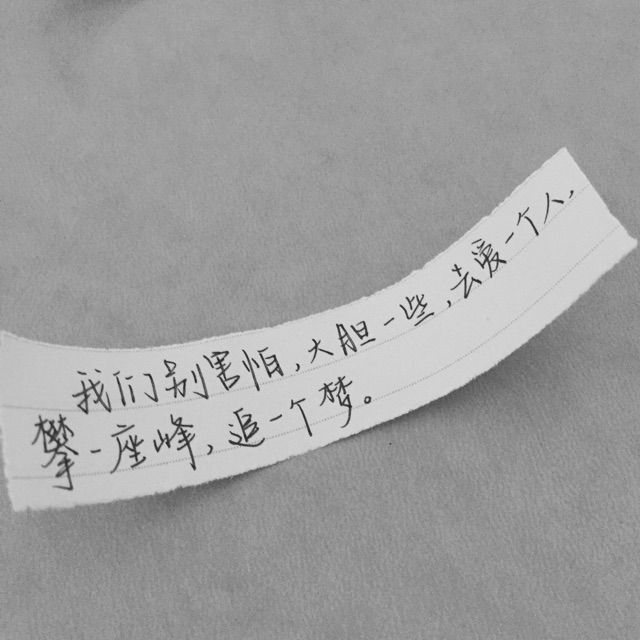 我们别害怕,大胆一些,去爱一个人,
攀一座峰,追一个梦。